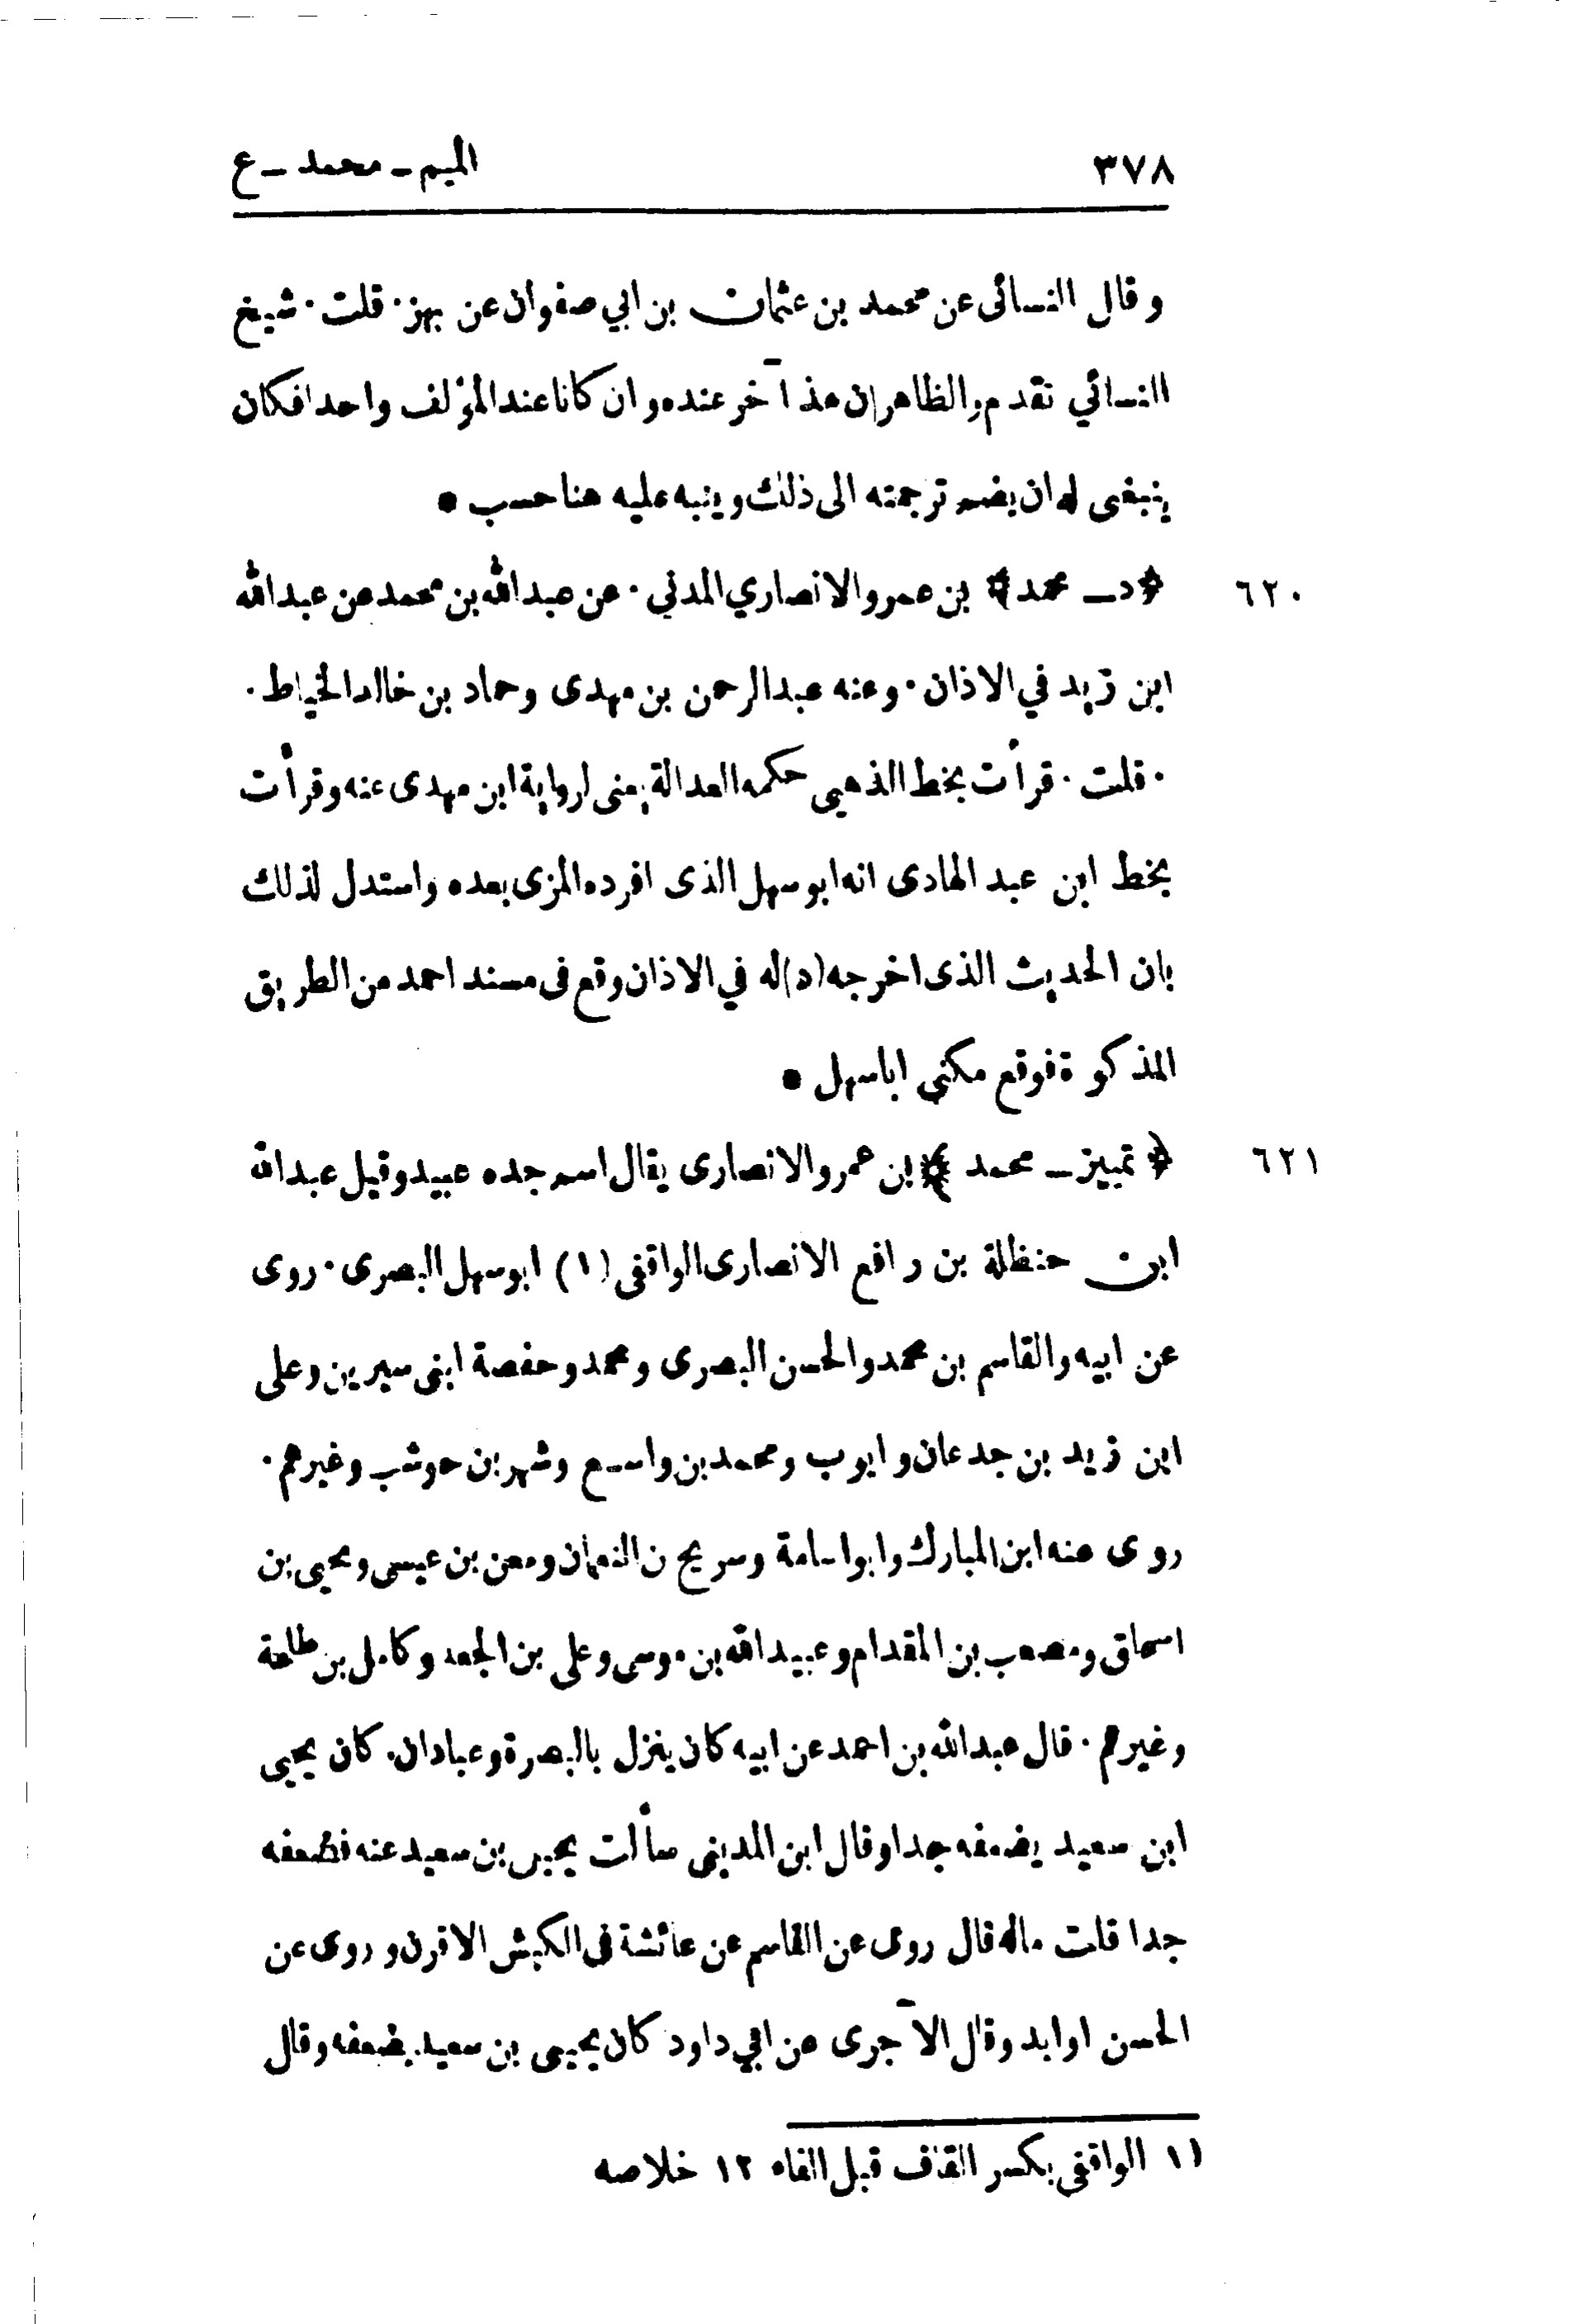 ٣٧٨
الميم - محمد - ع
وقال النسائى عن محمد بن عثمان بن ابي صفوان عن بهز · قلت · شيخ
النسائي تقدم والظاهر ان هذا آخر عنده وان كانا عند المؤلف واحدا فكان
ينبغى له ان يضم ترجمته الى ذلك وينبه عليه هنا حسب *
٦٢٠ ﴿ د ـ محمد ﴾ بن عمرو الانصاري المدني · عن عبدالله بن محمد عن عبدالله
ابن زيد في الاذان · وعنه عبدالرحمن بن مهدى وحماد بن خالد الخياط ·
· قلت · قرأت بخط الذهبي حكمه العدالة يعنى لرواية ابن مهدى عنه وقرأت
بخط ابن عبد الهادى انه ابو سهل الذى افرده المزى بعده واستدل لذلك
بان الحديث الذى اخرجه (د) له في الاذان وقع فى مسند احمد من الطريق
المذكوة فوقع مكنى اباسهل *
٦٢١ ﴿ تمييز ـ محمد ﴾ بن عمرو الانصارى يقال اسم جده عبيد وقيل عبدالله
ابن حنظلة بن رافع الانصارى الواقفى (١) ابو سهل البصرى · روى
عن ابيه والقاسم بن محمد والحسن البصرى ومحمد وحفصة ابنى سيرين وعلى
ابن زيد بن جدعان وايوب ومحمد بن واسع وشهر بن حوشب وغيرهم ·
روى عنه ابن المبارك وابو اسامة وسريج ن النعمان ومعن بن عيسى ويحيى بن
اسحاق ومصعب بن المقدام وعبيدالله بن موسى وعلى بن الجعد وكامل بن طلحة
وغيرهم · قال عبدالله بن احمد عن ابيه كان ينزل بالبصرة وعبادان· كان يحيى
ابن سعيد يضعفه جدا وقال ابن المدينى سألت يحيى بن سعيد عنه فضعفه
جدا قلت ماله قال روى عن القاسم عن عائشة فى الكبش الاقرن وروى عن
الحسن اوابد وقال الآجرى عن ابي داود كان يحيى بن سعيد يضعفه وقال
(١ الواقفى بكسر القاف قبل الفاء ١٢ خلاصه